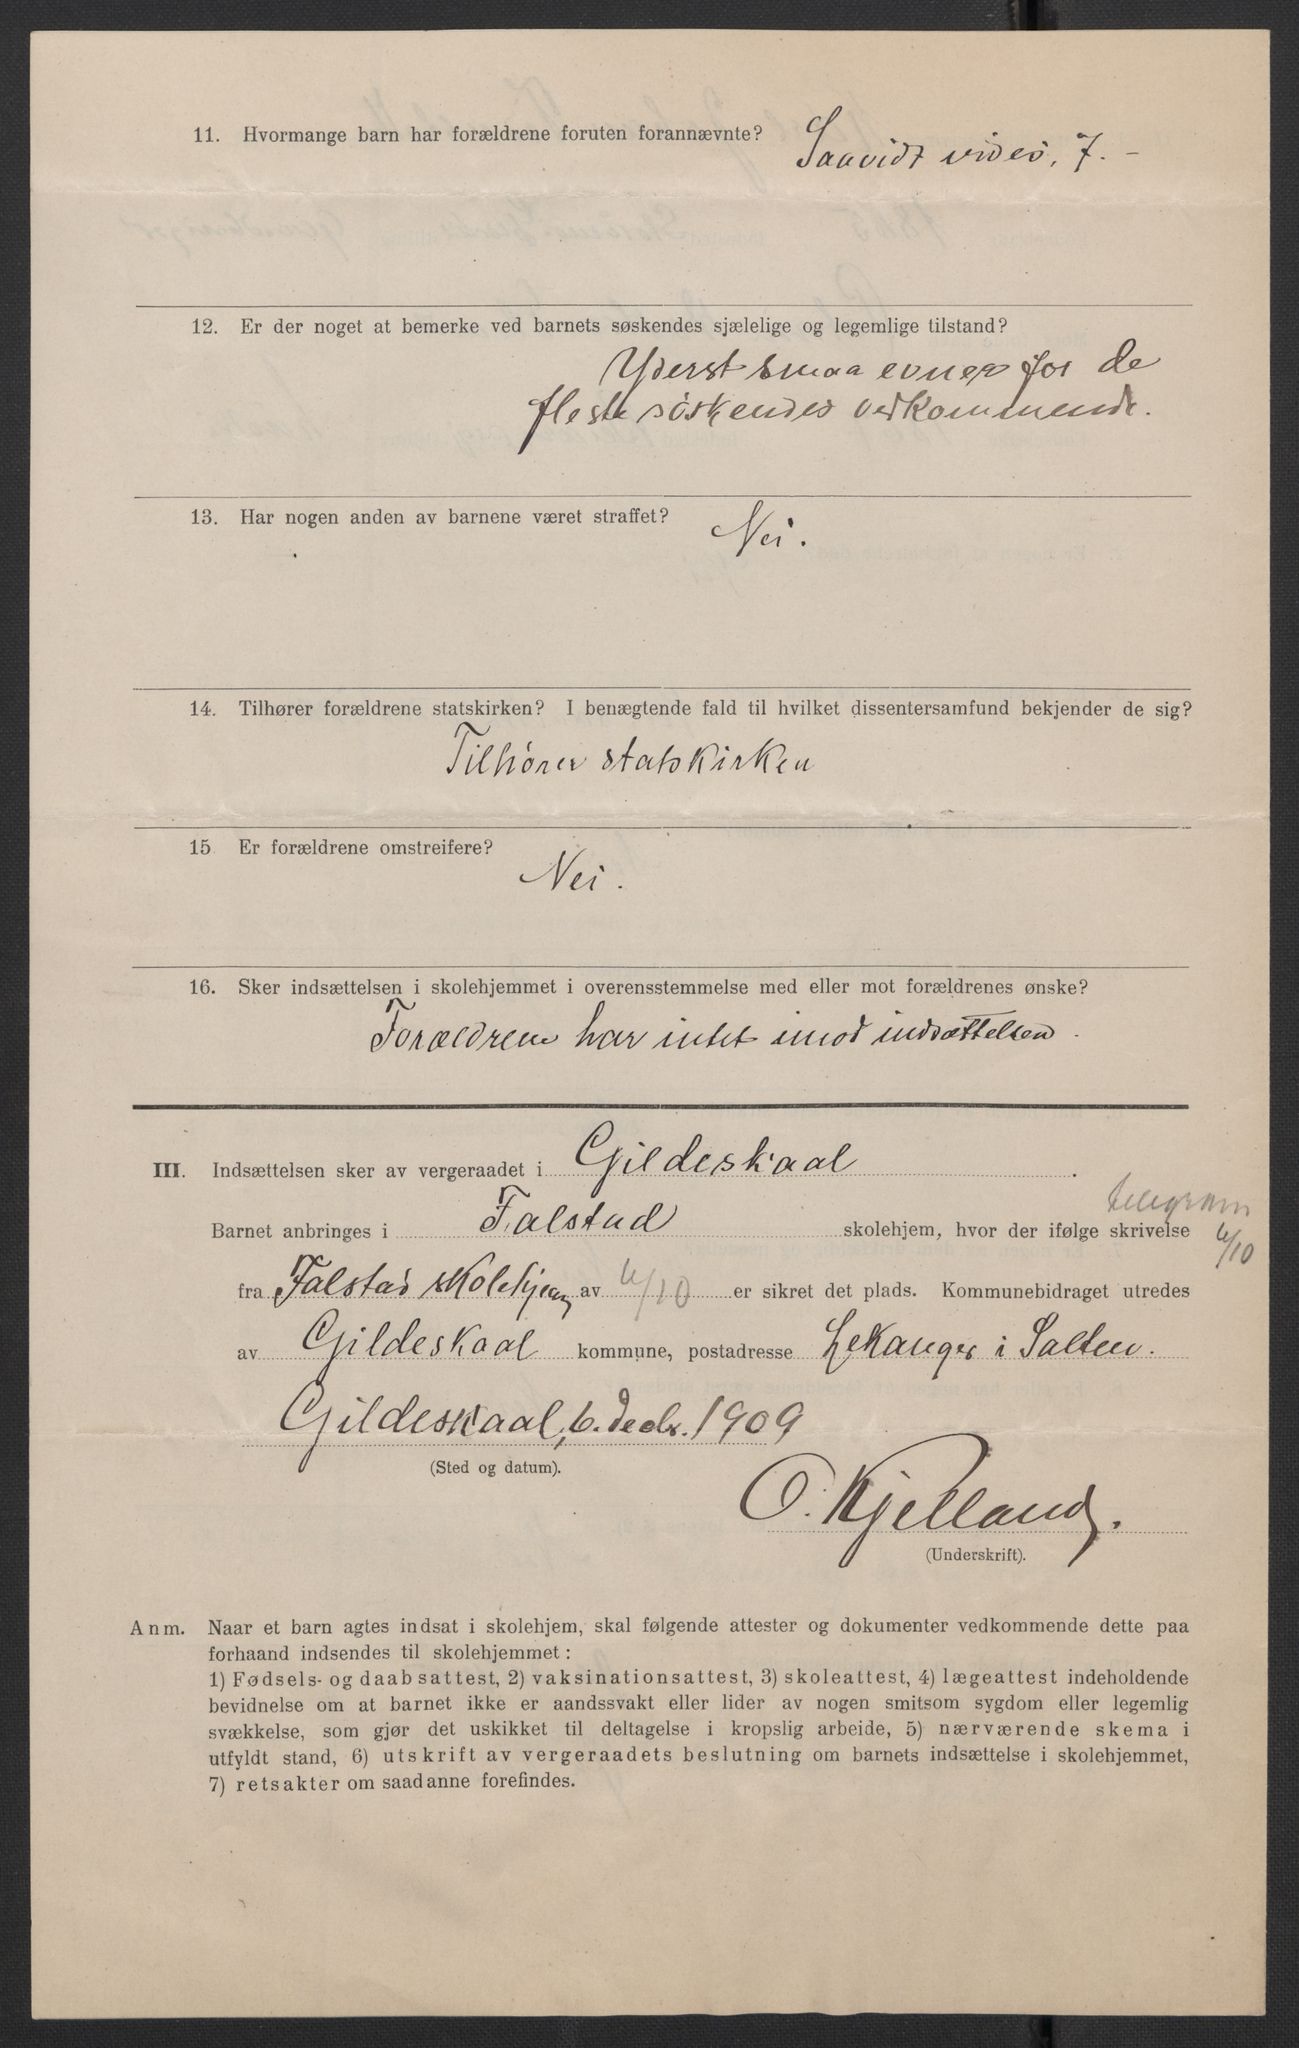 11. Hvormange barn har forældrene foruten forannævnte?
Saavidt vides, 7. -
12. Er der noget at bemerke ved barnets søskendes sjælelige og legemlige tilstand?
Yderst smaa evner for de
fleste søskendes vedkommende.
13. Har nogen anden av barnene været straffet?
Nei.
14. Tilhører forældrene statskirken? I benægtende fald til hvilket dissentersamfund bekjender de sig?
Tilhører statskirken
15 Er forældrene omstreifere?
Nei.
16. Sker indsættelsen i skolehjemmet i overensstemmelse med eller mot forældrenes ønske?
Forældrene har intet imod indsættelsen.
III. Indsættelsen sker av vergeraadet i Gildeskaal.
telegram
Barnet anbringes i Falstad skolehjem, hvor der ifølge skrivelse 6/10
fra Falstad skolehjem av 6/10 er sikret det plads. Kommunebidraget utredes
av Gildeskaal kommune, postadresse Lekanger i Salten.
Gildeskaal, 6. decbr. 1909
(Sted og datum).
O. Kjelland.
(Underskrift).
Anm. Naar et barn agtes indsat i skolehjem, skal følgende attester og dokumenter vedkommende dette paa
forhaand indsendes til skolehjemmet:
1) Fødsels- og daabsattest, 2) vaksinationsattest, 3) skoleattest, 4) lægeattest indeholdende
bevidnelse om at barnet ikke er aandssvakt eller lider av nogen smitsom sygdom eller legemlig
svækkelse, som gjør det uskikket til deltagelse i kropslig arbeide, 5) nærværende skema i
utfyldt stand, 6) utskrift av vergeraadets beslutning om barnets indsættelse i skolehjemmet,
7) retsakter om saadanne forefindes.